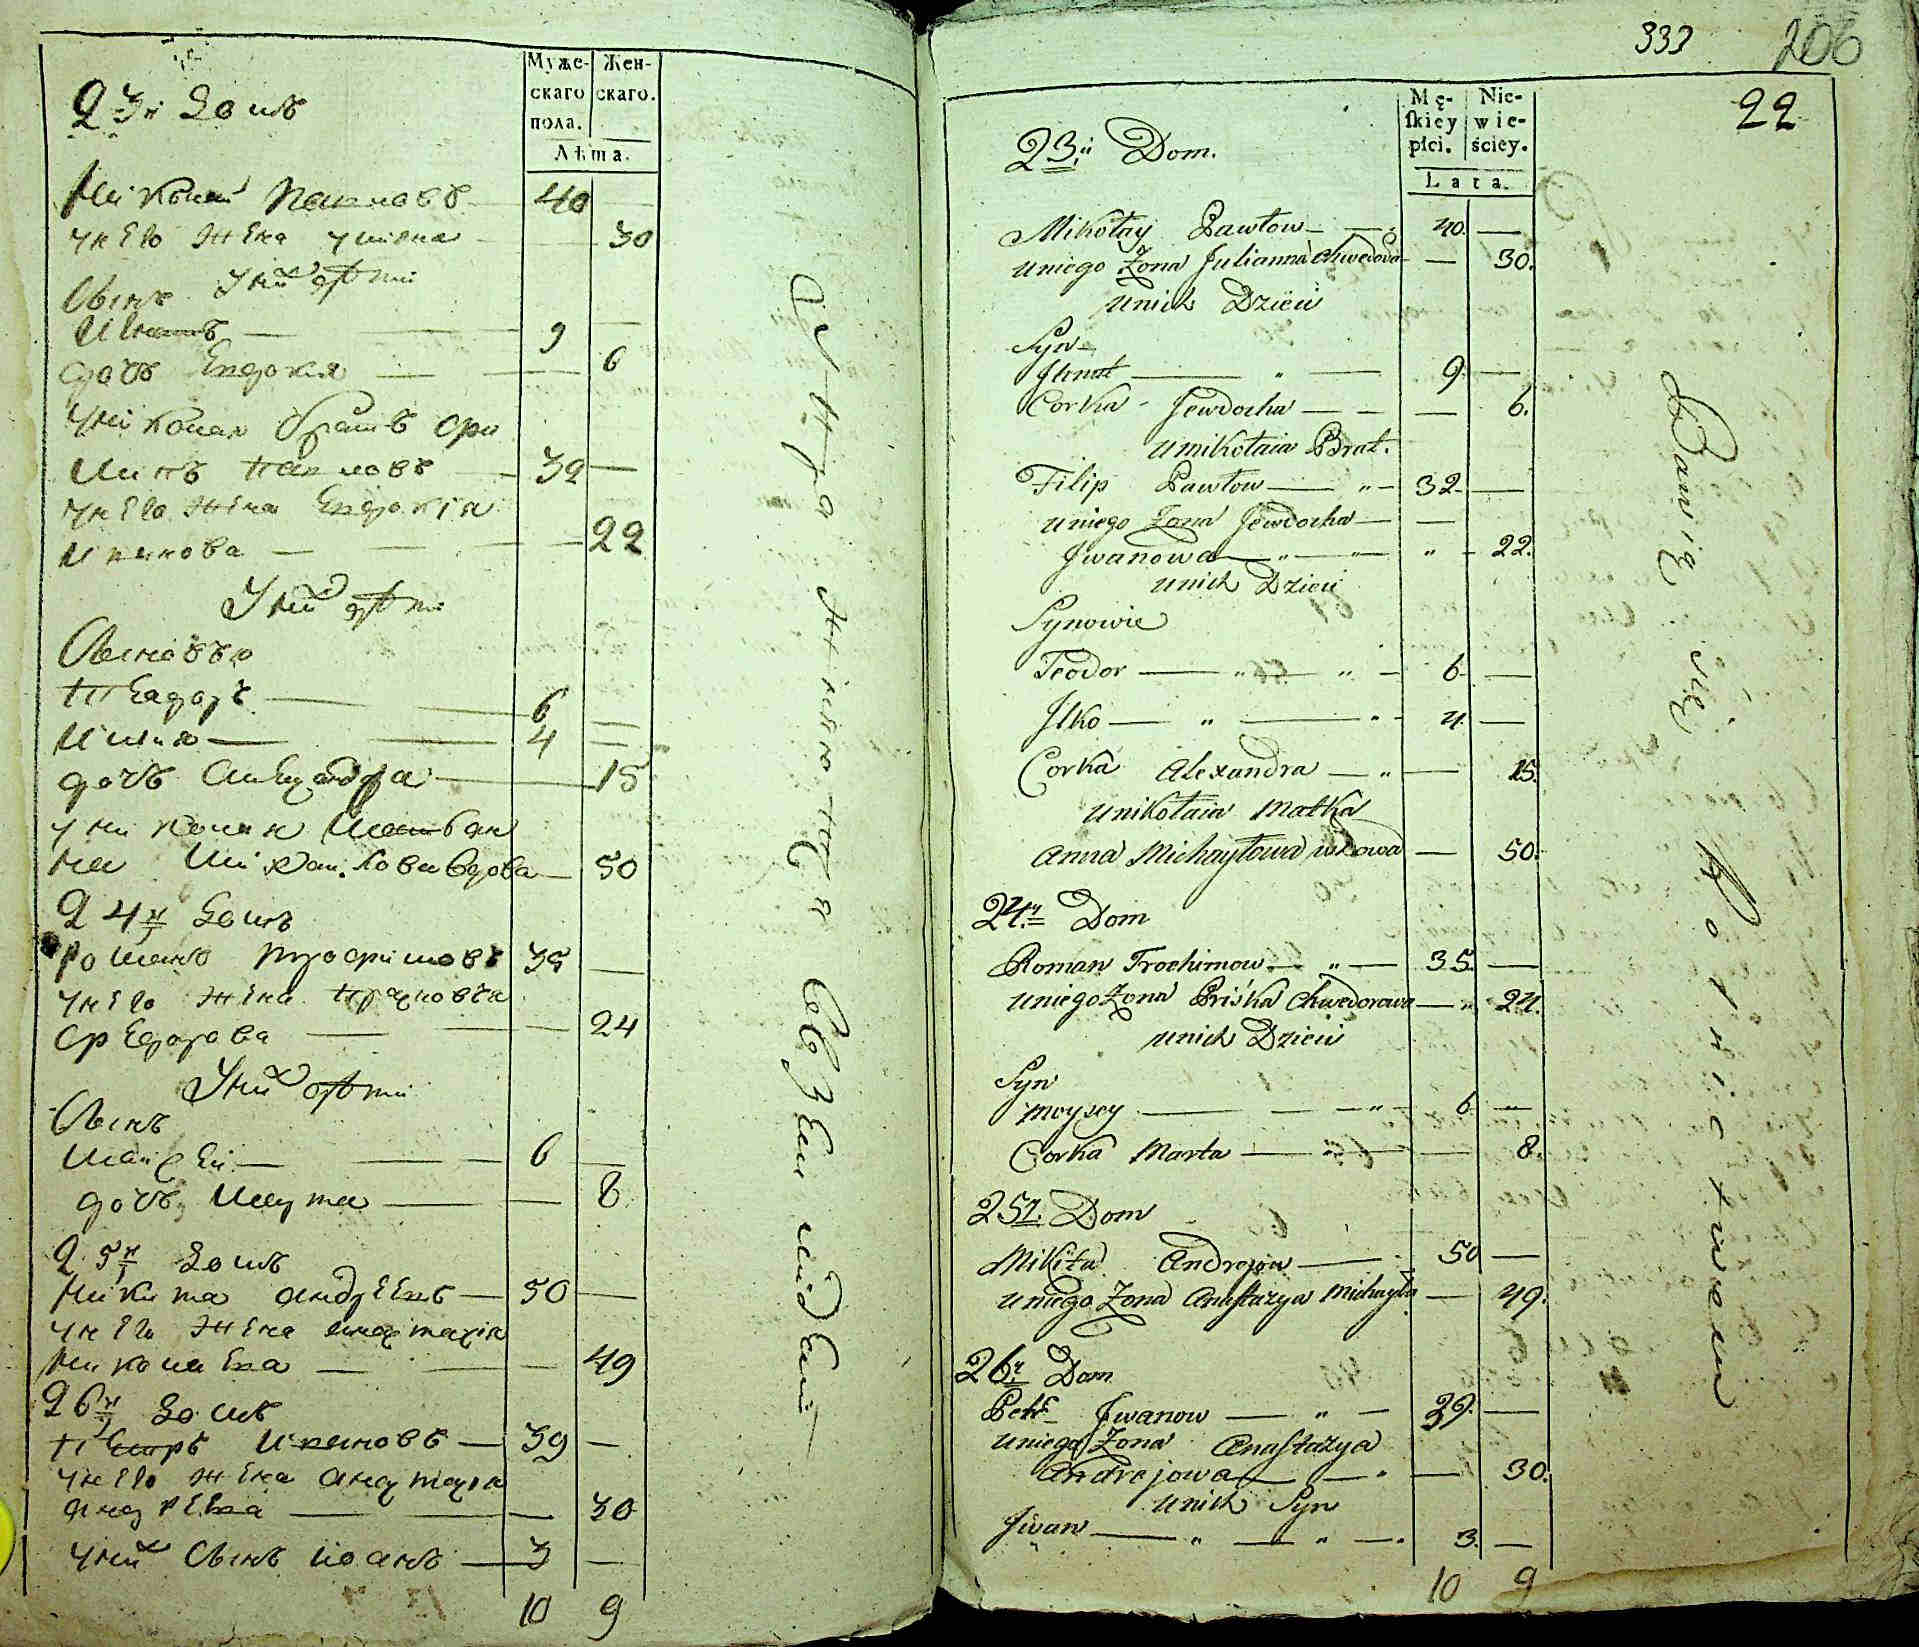 Муже-
скаго
пола.
Жен-
скаго.
Лѣта.
23й Домъ
Николай Павловъ — 40 —
у него жена Улiяна — — 30
у них дѣти
Сынъ
Игнатъ — 9 —
дочь Евдокия — — 6
у Николая братъ Фи
липъ Павловъ — 32 —
у него жена Евдокiя
Иванова — — 22
у них дѣти
Сыновья
Теадоръ — 6 —
Илия — 4 —
дочь Александра — 15
у Николая Мать Ан
на Михайлова вдова — 50
24й Домъ
Романъ Трофимовъ 35 —
у него жена Прасковья
Федорова — — 24
у них дѣти
Сынъ
Майсей — 6 —
дочь Марта — — 8
25й Домъ
Никита Андреевъ — 50 —
у него жена Анастасiя
Николаева — — 49
26й Домъ
Петръ Ивановъ — 39 —
у него жена Анастасiя
Андреева — — 30
у них Сынъ Иоанъ — 3 —
10 9
333
206
22
Mę-
ſkiey
płci.
Nie-
wie-
ściey.
Lata.
23.й Dom.
Mikołay Pawłow — 40. —
u niego Żona Julianna Chwedova — 30.
u nich Dzieci
Syn
Jhnat — " — 9. —
Corka Jewdocha — — 6.
u Mikołaia Brat.
Filip Pawłow — " — 32 —
u niego Żona Jewdocha — —
Jwanowa — " — " — " — 22.
u nich Dzieci
Synowie
Teodor — " — " — 6 —
Jlko — " — " — 4. —
Corka Alexandra — " — 15.
u Nikołaia Matka
Anna Michayłowa wdowa — 50.
24.й Dom
Roman Trochimow — " — 35. —
u niego Żona Priśka Chwedorowa — " 24.
u nich Dzieci
Syn
Moysey — — — " 6. —
Corka Marta — " — — 8.
25й. Dom
Mikita Andrejow — 50 —
u niego Żona Anaſtazya Michayło — 49.
26й Dom
Petr Jwanow — " — 39. —
u niego Żona Anaſtazya
Andrejowa — — " — 30.
u nich Syn
Jwan — " — " — 3. —
10 9
Bawią się Rolnictwem